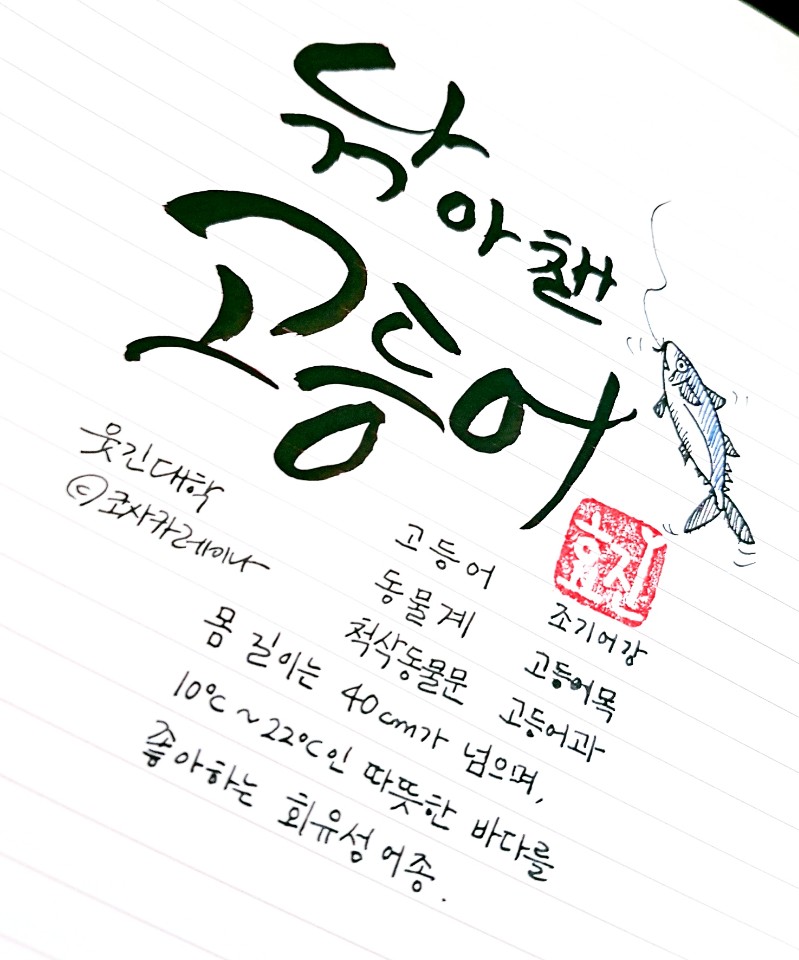 낚아챈
고등어
웃긴대학
ⓒ코사카레이나
효진
고등어 조기어강
동물계 고등어목
척삭동물문 고등어과
몸 길이는 40cm가 넘으며,
10℃~22℃인 따뜻한 바다를
좋아하는 회유성 어종.